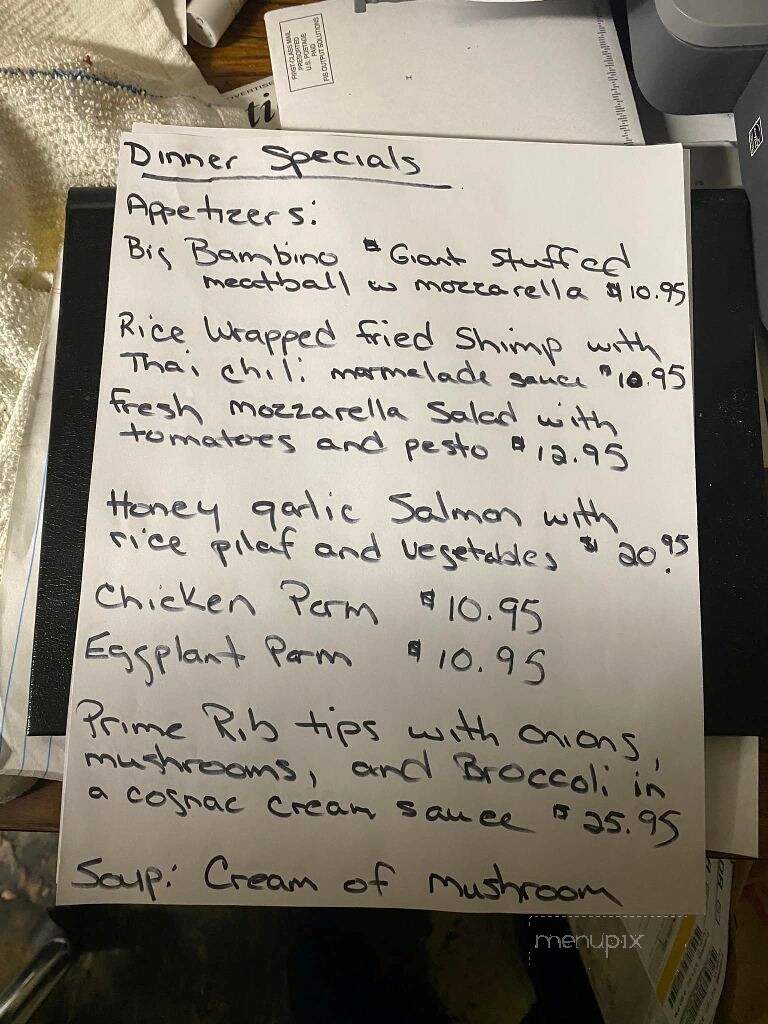 FIRST-CLASS MAIL
PRESORTED
U.S. POSTAGE
PAID
FIS OUTPUT SOLUTIONS
ti
Dinner Specials
Appetizers:
Big Bambino Giant Stuffed
meatball w mozzarella $10.95
Rice Wrapped fried Shimp with
Thai chili marmelade sauce $10.95
fresh mozzarella Salad with
tomatoes and pesto $12.95
Honey garlic Salmon with
rice pilaf and vegetables $20.95
Chicken Parm $10.95
Eggplant Parm $10.95
Prime Rib tips with onions,
mushrooms, and Broccoli in
a cognac cream sauce $25.95
Soup: Cream of mushroom
menupix